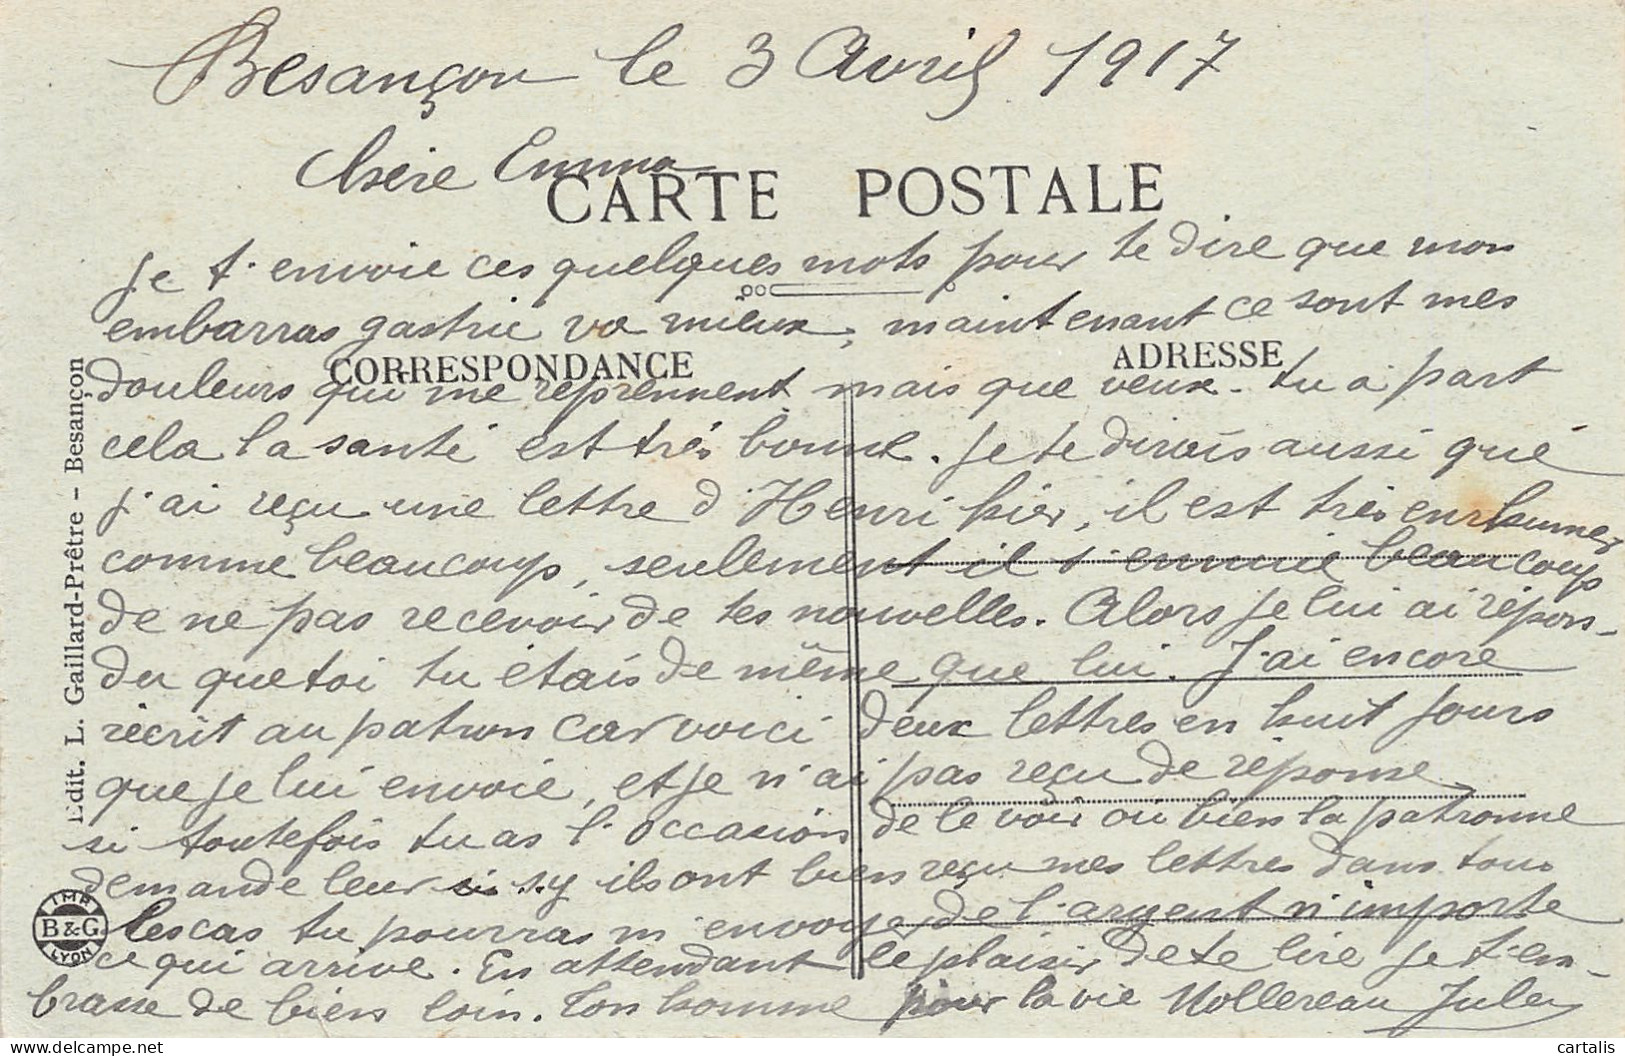 Besançon le 3 Avril 1917
Chère Emma
CARTE POSTALE
Je t'envoie ces quelques mots pour te dire que mon
embarras gastrie va mieux, maintenant ce sont mes
CORRESPONDANCE
ADRESSE
douleurs qui me reprennent mais que veux-tu a part
cela la santé est très bonne. Je te dirais aussi que
j'ai reçu une lettre d'Henri hier, il est très enrhumez
comme beaucoup, seulement il s'ennuie beaucoup
de ne pas recevoir de tes nouvelles. Alors je lui ai répon-
du que toi tu étais de même que lui. J'ai encore
réécrit au patron car voici deux lettres en huit jours
que je lui envoie, et je n'ai pas reçu de réponse,
si toutefois tu as l'occasion de le voir ou bien la patronne
demande leur si ils ont bien reçu mes lettres dans tous
les cas tu pourras m'envoyer de l'argent n'importe
ce qui arrive. En attendant le plaisir de te lire je t'em-
brasse de bien loin. Ton homme pour la vie Mollereau Jules
Edit. L. Gaillard-Prêtre - Besançon
IMP B&G LYON
cartalis
www.delcampe.net